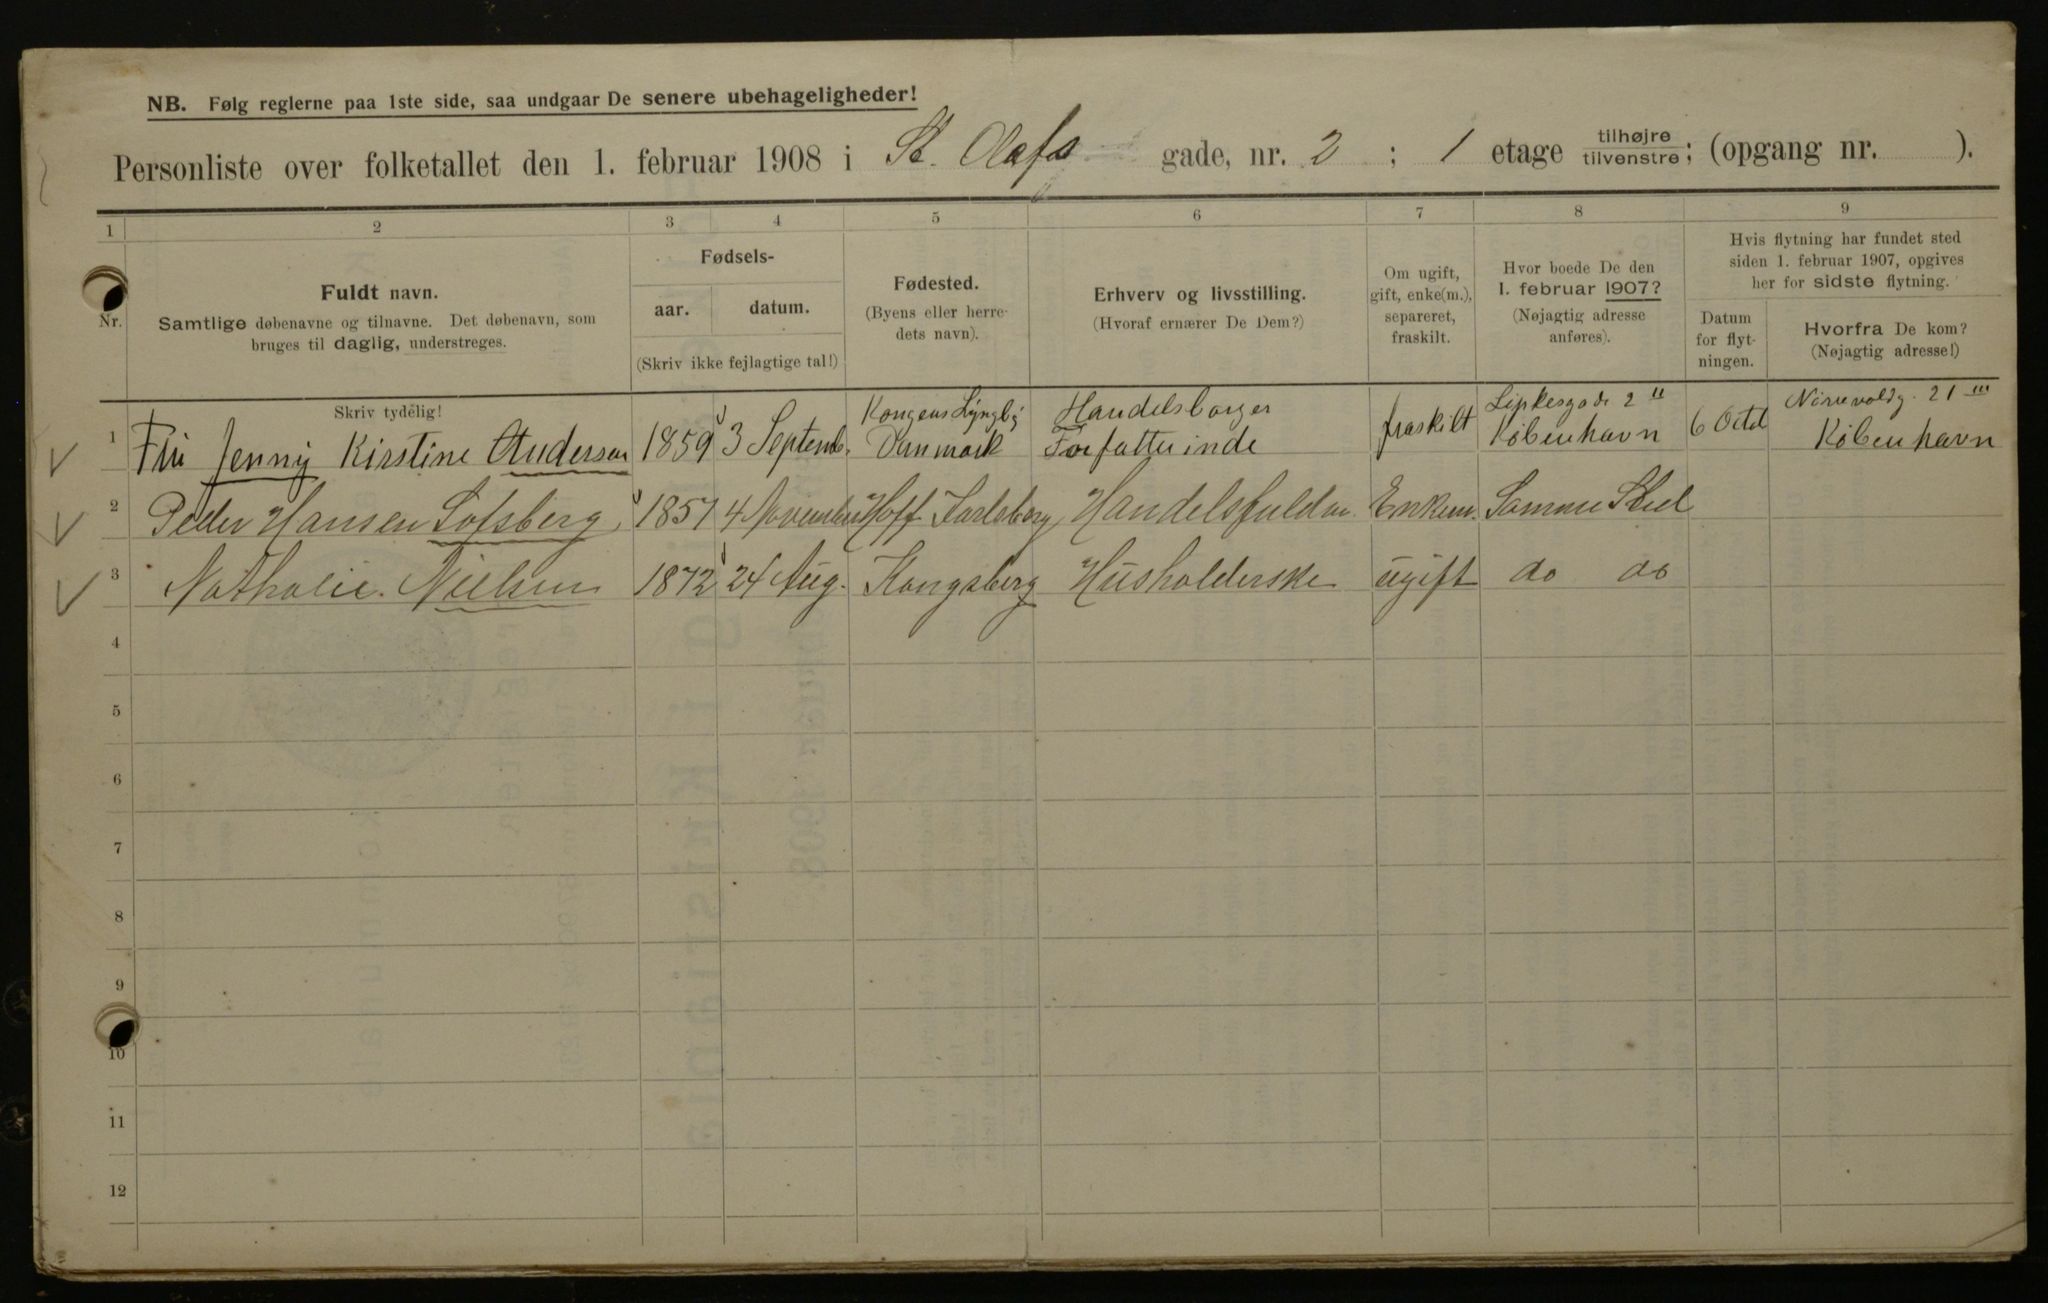 NB. Følg reglerne paa 1ste side, saa undgaar De senere ubehageligheder!
Personliste over folketallet den 1. februar 1908 i St. Olafs gade, nr. 2 ; 1 etage tilhøjre tilvenstre; (opgang nr. ).
1 2 3 4 5 6 7 8 9
Nr.
Fuldt navn.
Samtlige døbenavne og tilnavne. Det døbenavn, som
bruges til daglig, understreges.
Skriv tydelig!
Fødsels-
aar. datum.
(Skriv ikke fejlagtige tal!)
Fødested.
(Byens eller herre-
dets navn).
Erhverv og livsstilling.
(Hvoraf ernærer De Dem?)
Om ugift,
gift, enke(m.),
separeret,
fraskilt.
Hvor boede De den
1. februar 1907?
(Nøjagtig adresse
anføres).
Hvis flytning har fundet sted
siden 1. februar 1907, opgives
her for sidste flytning.
Datum
for flyt-
ningen.
Hvorfra De kom?
(Nøjagtig adresse!)
Kongens Lyngby Handelsborger 2 II 21 III
1 Jenny Kirstine Anderson 1859 3 Septemb. Danmark Forfatterinde fraskilt København 6 Octb København
2 Peder Hansen Lofsberg 1857 4 November Hoff Jarlsberg Enkem. Samme Sted
3 Nathalie Nielsen 1872 24 Aug. Kongsberg Husholderske ugift do do
4
5
6
7
8
9
10
11
12